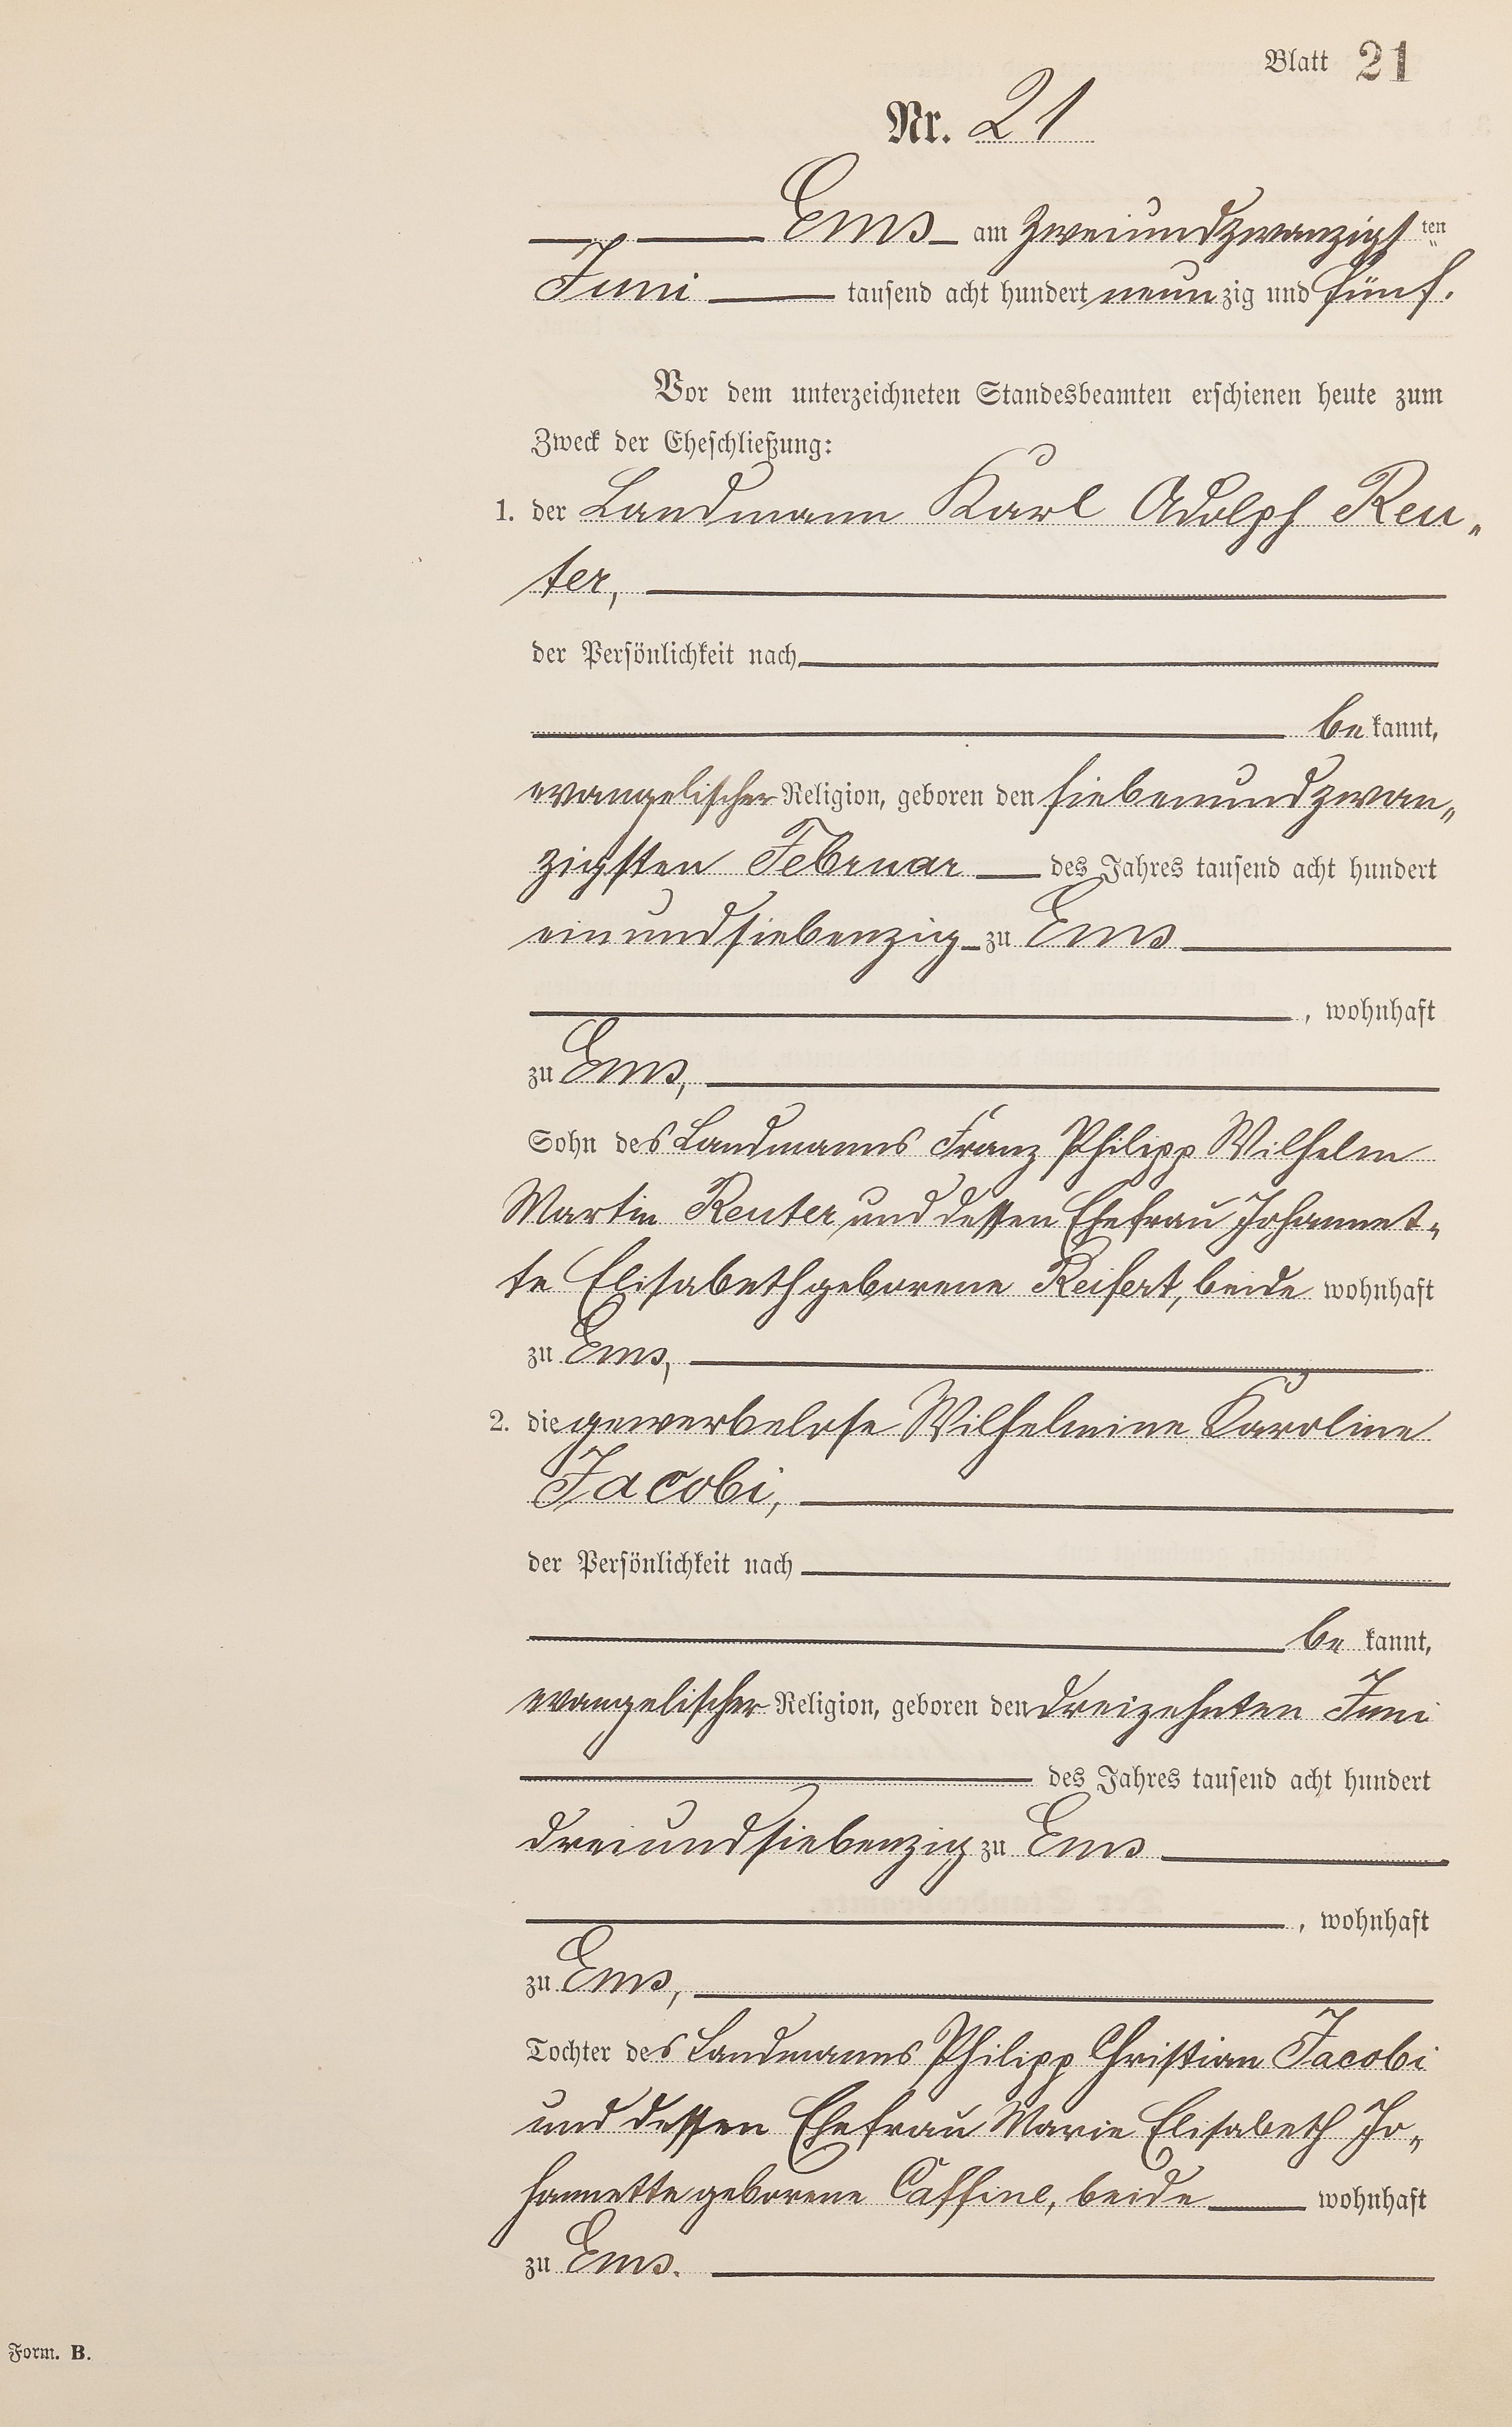 Blatt 21
Nr. 21
Ems am zweiundzwanzigsten
Juni tausend acht hundert neunzig und fünf.
Vor dem unterzeichneten Standesbeamten erschienen heute zum
Zweck der Eheschließung:
1. der Landmann Karl Adolph Reu„
ter,
der Persönlichkeit nach
bekannt,
evangelischer Religion, geboren den siebenundzwan„
zigsten Februar des Jahres tausend acht hundert
einundsiebenzig zu Ems
, wohnhaft
zu Ems,
Sohn des Landmanns Franz Philipp Wilhelm
Martin Reuter und dessen Ehefrau Johannet„
te Elisabeth geborene Reifert, beide wohnhaft
zu Ems,
2. die gewerbelose Wilhelmine Karoline
Jacobi,
der Persönlichkeit nach
bekannt,
evangelischer Religion, geboren den dreizehnten Juni
des Jahres tausend acht hundert
dreiundsiebenzig zu Ems
, wohnhaft
zu Ems,
Tochter des Landmanns Philipp Christian Jacobi
und dessen Ehefrau Marie Elisabeth Jo„
hannette geborene Caffine, beide wohnhaft
zu Ems.
Form. B.